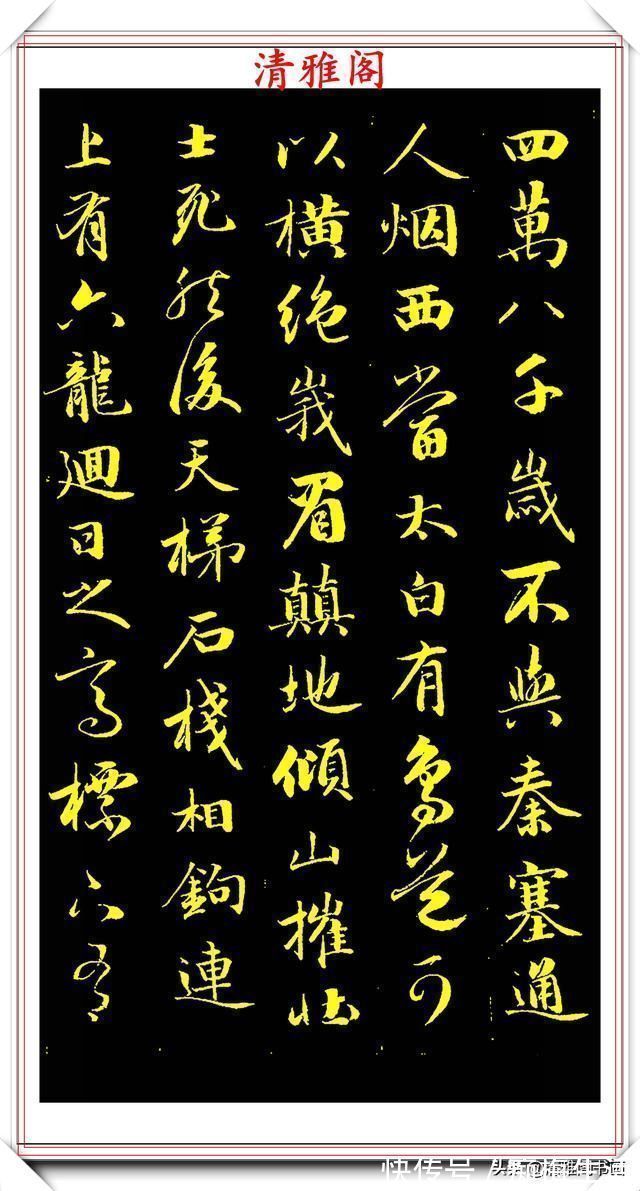 清雅阁
四萬八千歲不與秦塞通
人烟西當太白有鳥道可
以橫絕峩眉顛地傾山摧壯
士死然後天梯石棧相鉤連
上有六龍廻日之高標下有
快传号